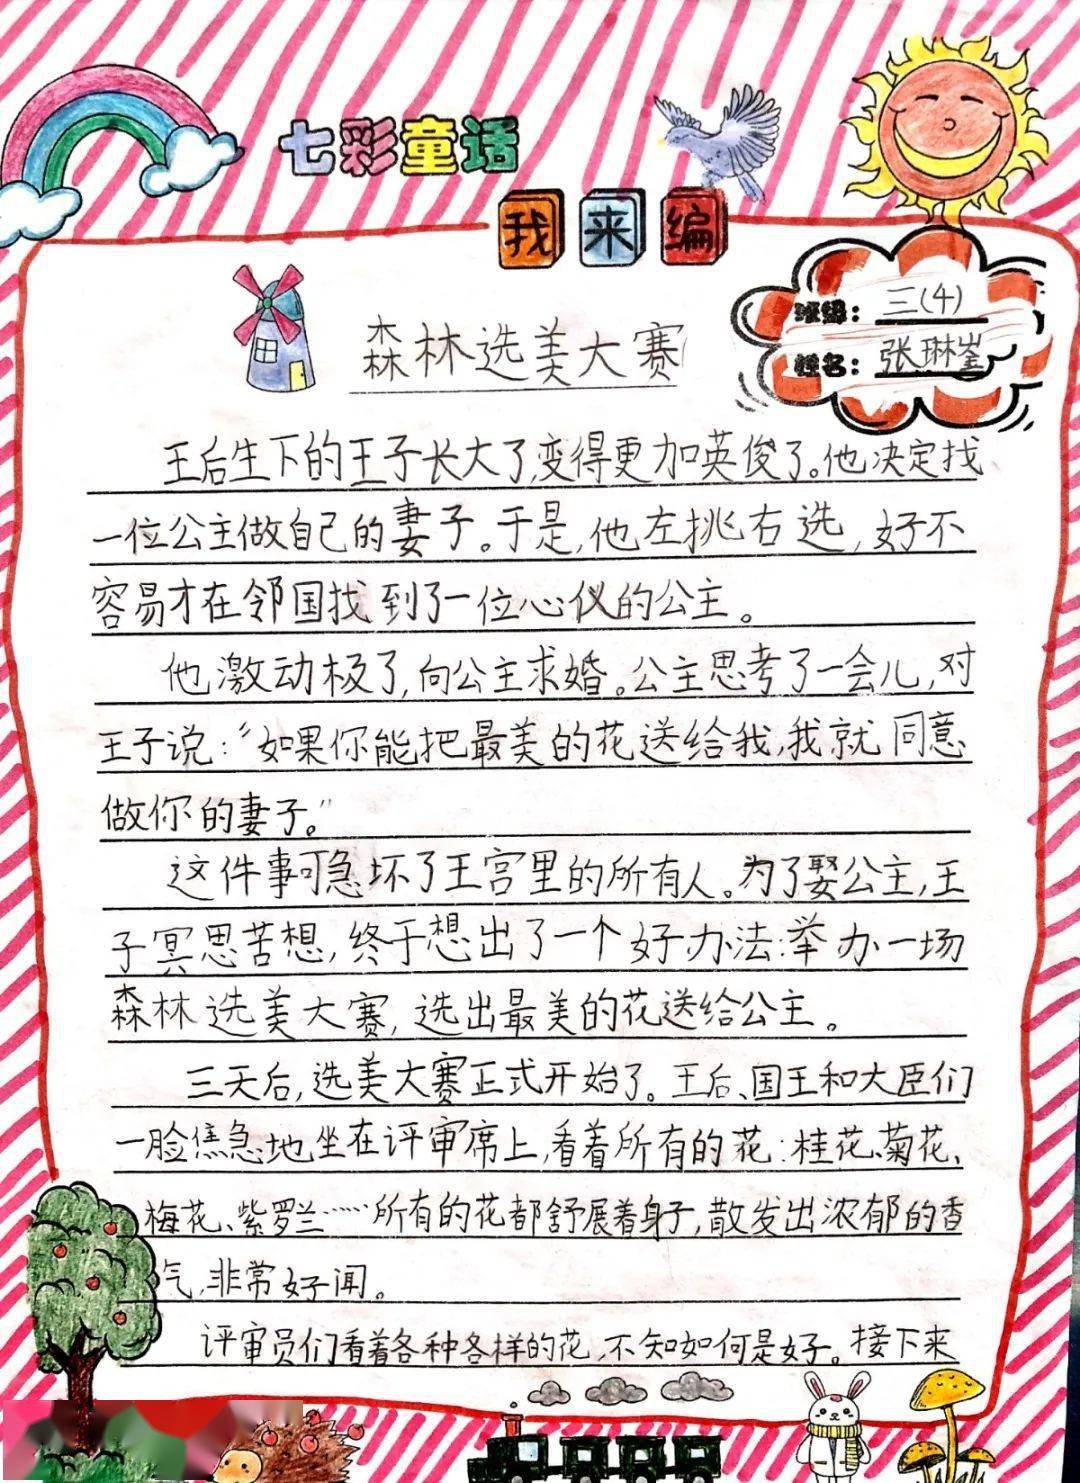 七彩童话
我来编
班级：三（4）
姓名：张琳崟
森林选美大赛
王后生下的王子长大了，变得更加英俊了。他决定找
一位公主做自己的妻子。于是，他左挑右选，好不
容易才在邻国找到了一位心仪的公主。
他激动极了，向公主求婚。公主思考了一会儿，对
王子说：“如果你能把最美的花送给我，我就同意
做你的妻子。”
这件事可急坏了王宫里的所有人。为了娶公主，王
子冥思苦想，终于想出了一个好办法：举办一场
森林选美大赛，选出最美的花送给公主。
三天后，选美大赛正式开始了。王后、国王和大臣们
一脸焦急地坐在评审席上，看着所有的花：桂花、菊花、
梅花、紫罗兰……所有的花都舒展着身子，散发出浓郁的香
气，非常好闻。
评审员们看着各种各样的花，不知如何是好。接下来